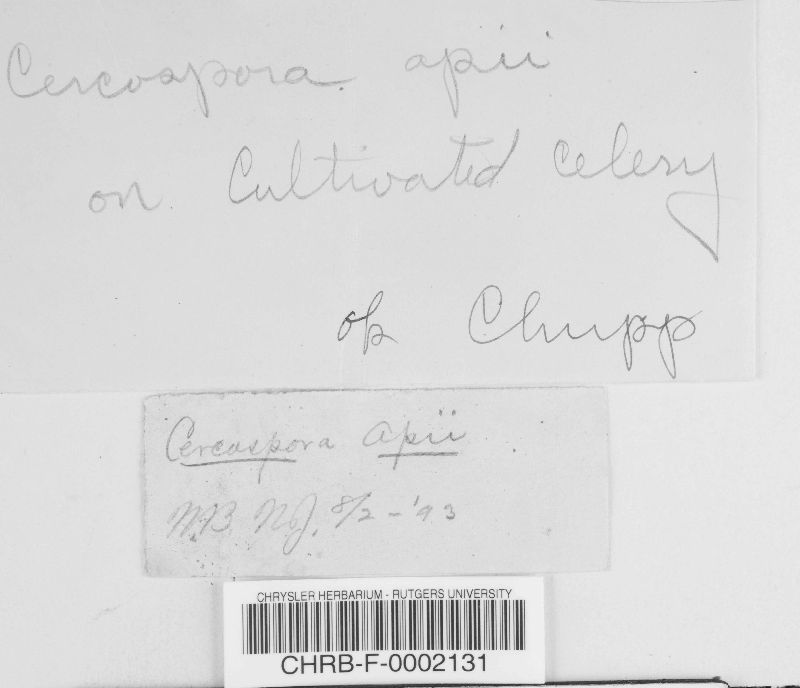 Cercospora apii
on Cultivated Celery
ok Chupp
Cercospora apii
N.B. N.J. 8/2-'93
CHRYSLER HERBARIUM - RUTGERS UNIVERSITY
CHRB-F-0002131